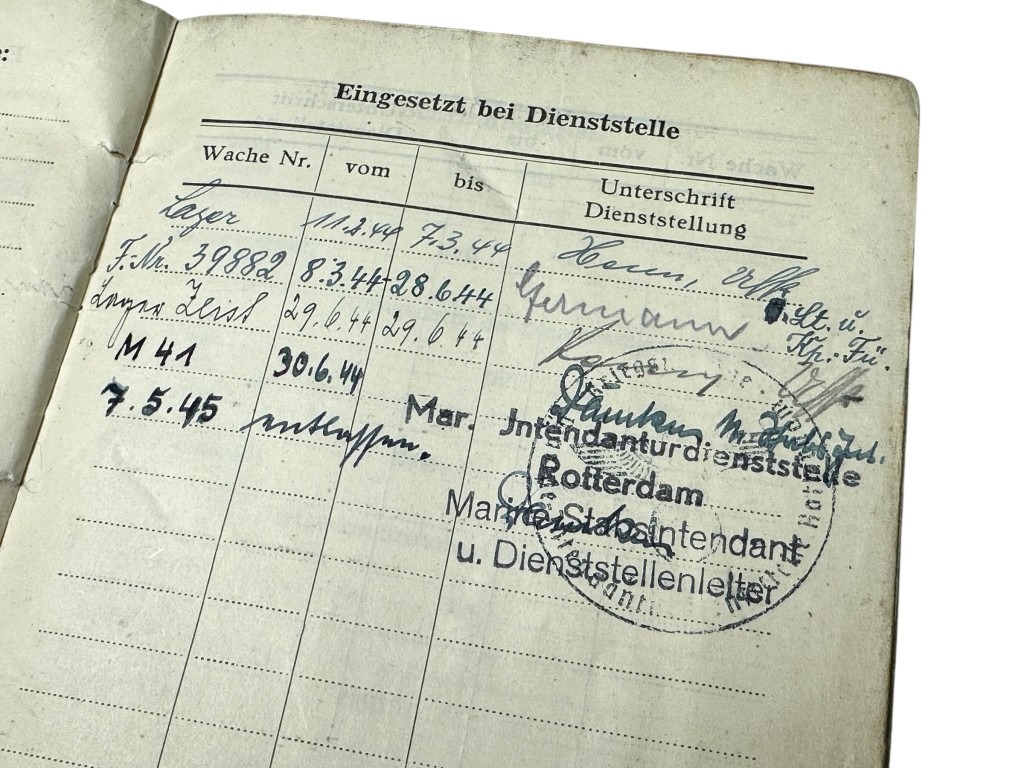 Eingesetzt bei Dienststelle
Wache Nr. vom bis Unterschrift
Dienststellung
Lager 11.2.44 7.3.44
F.-Nr. 39882 8.3.44 28.6.44 Germann Lt. u.
Kp.-Fü.
Lager Zeist 29.6.44 29.6.44
M 41 30.6.44
7.5.45 entlassen.
Mar. Intendanturdienststelle
Rotterdam
Marine-Stabsintendant
u. Dienststellenleiter